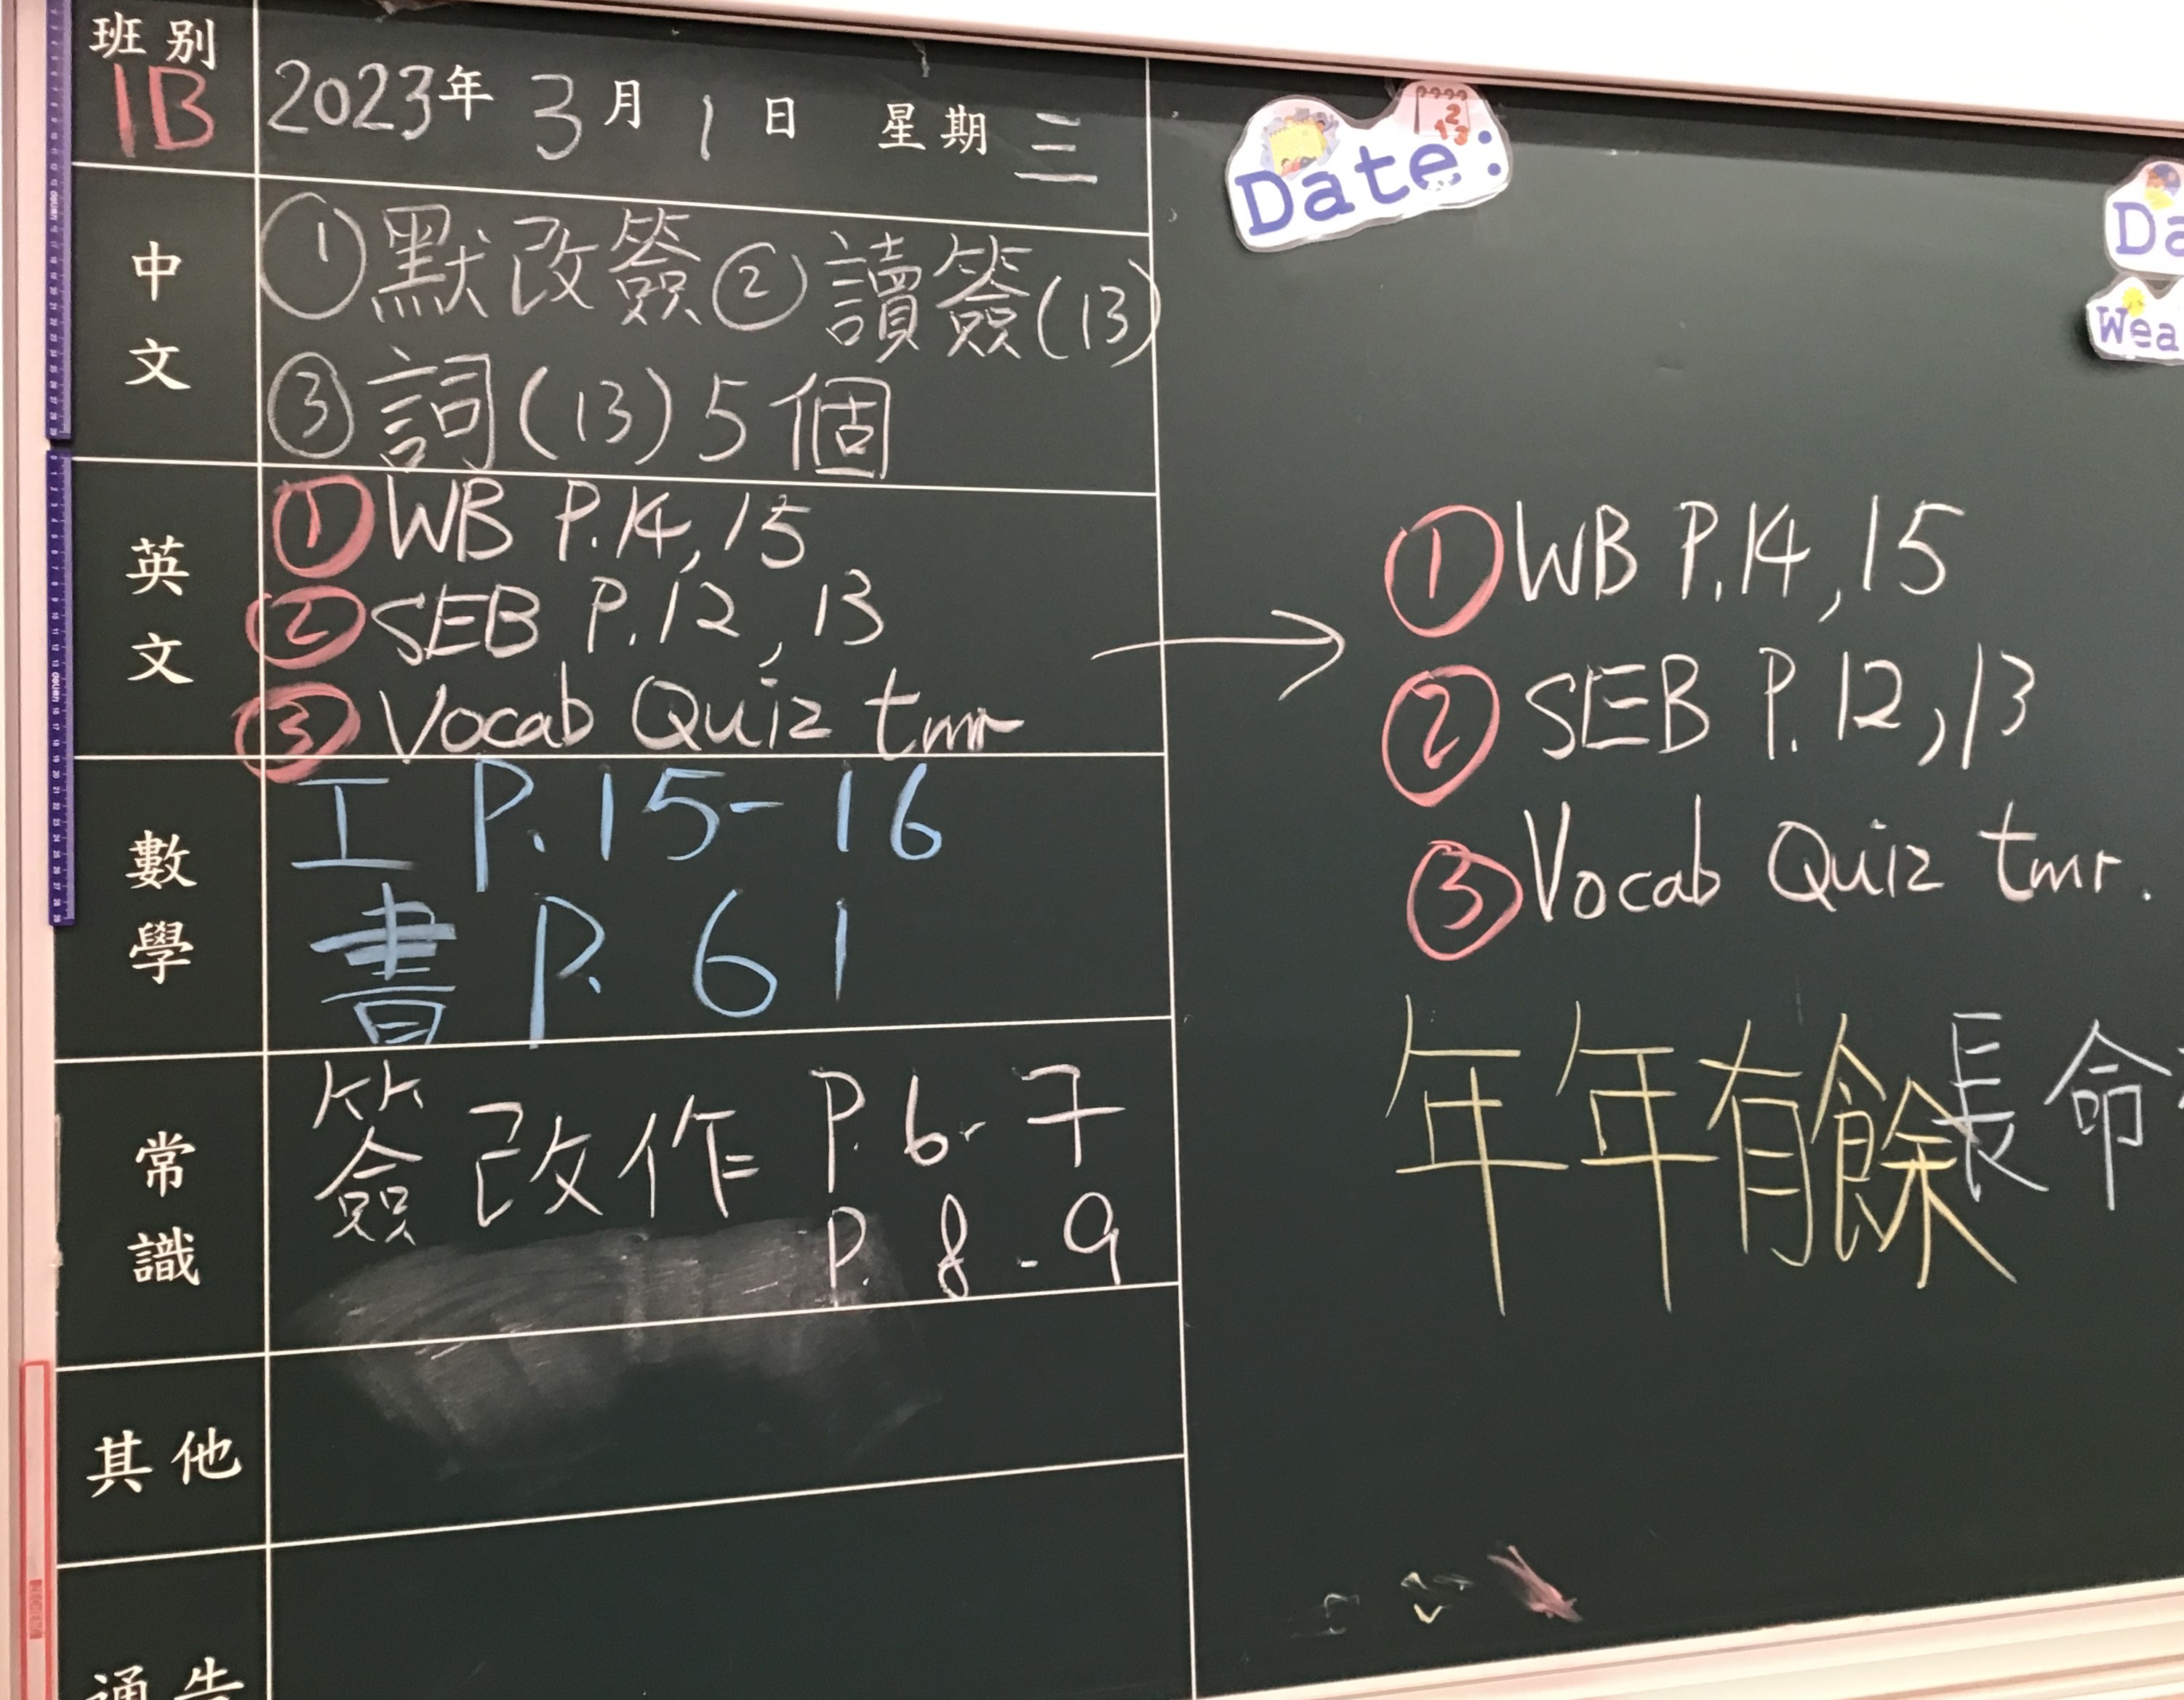 班別
1B
2023年 3月 1日 星期三
中文
①默改簽②讀簽(13)
③詞(13)5個
英文
① WB P.14, 15
② SEB P.12, 13
③ Vocab Quiz tmr
數學
工 P.15-16
書 P.61
常識
簽改作 P.6-7
P.8-9
其他
通告
Date:
Da
Wea
① WB P.14, 15
② SEB P.12, 13
③ Vocab Quiz tmr.
年年有餘
長命